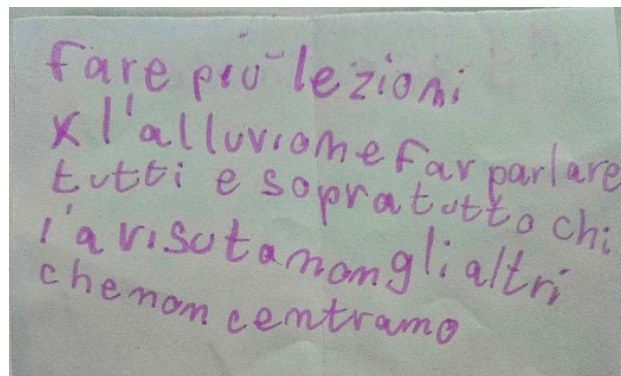 fare più lezioni
x l'alluvione far parlare
tutti e sopratutto chi
l'a visuta non gli altri
che non centrano